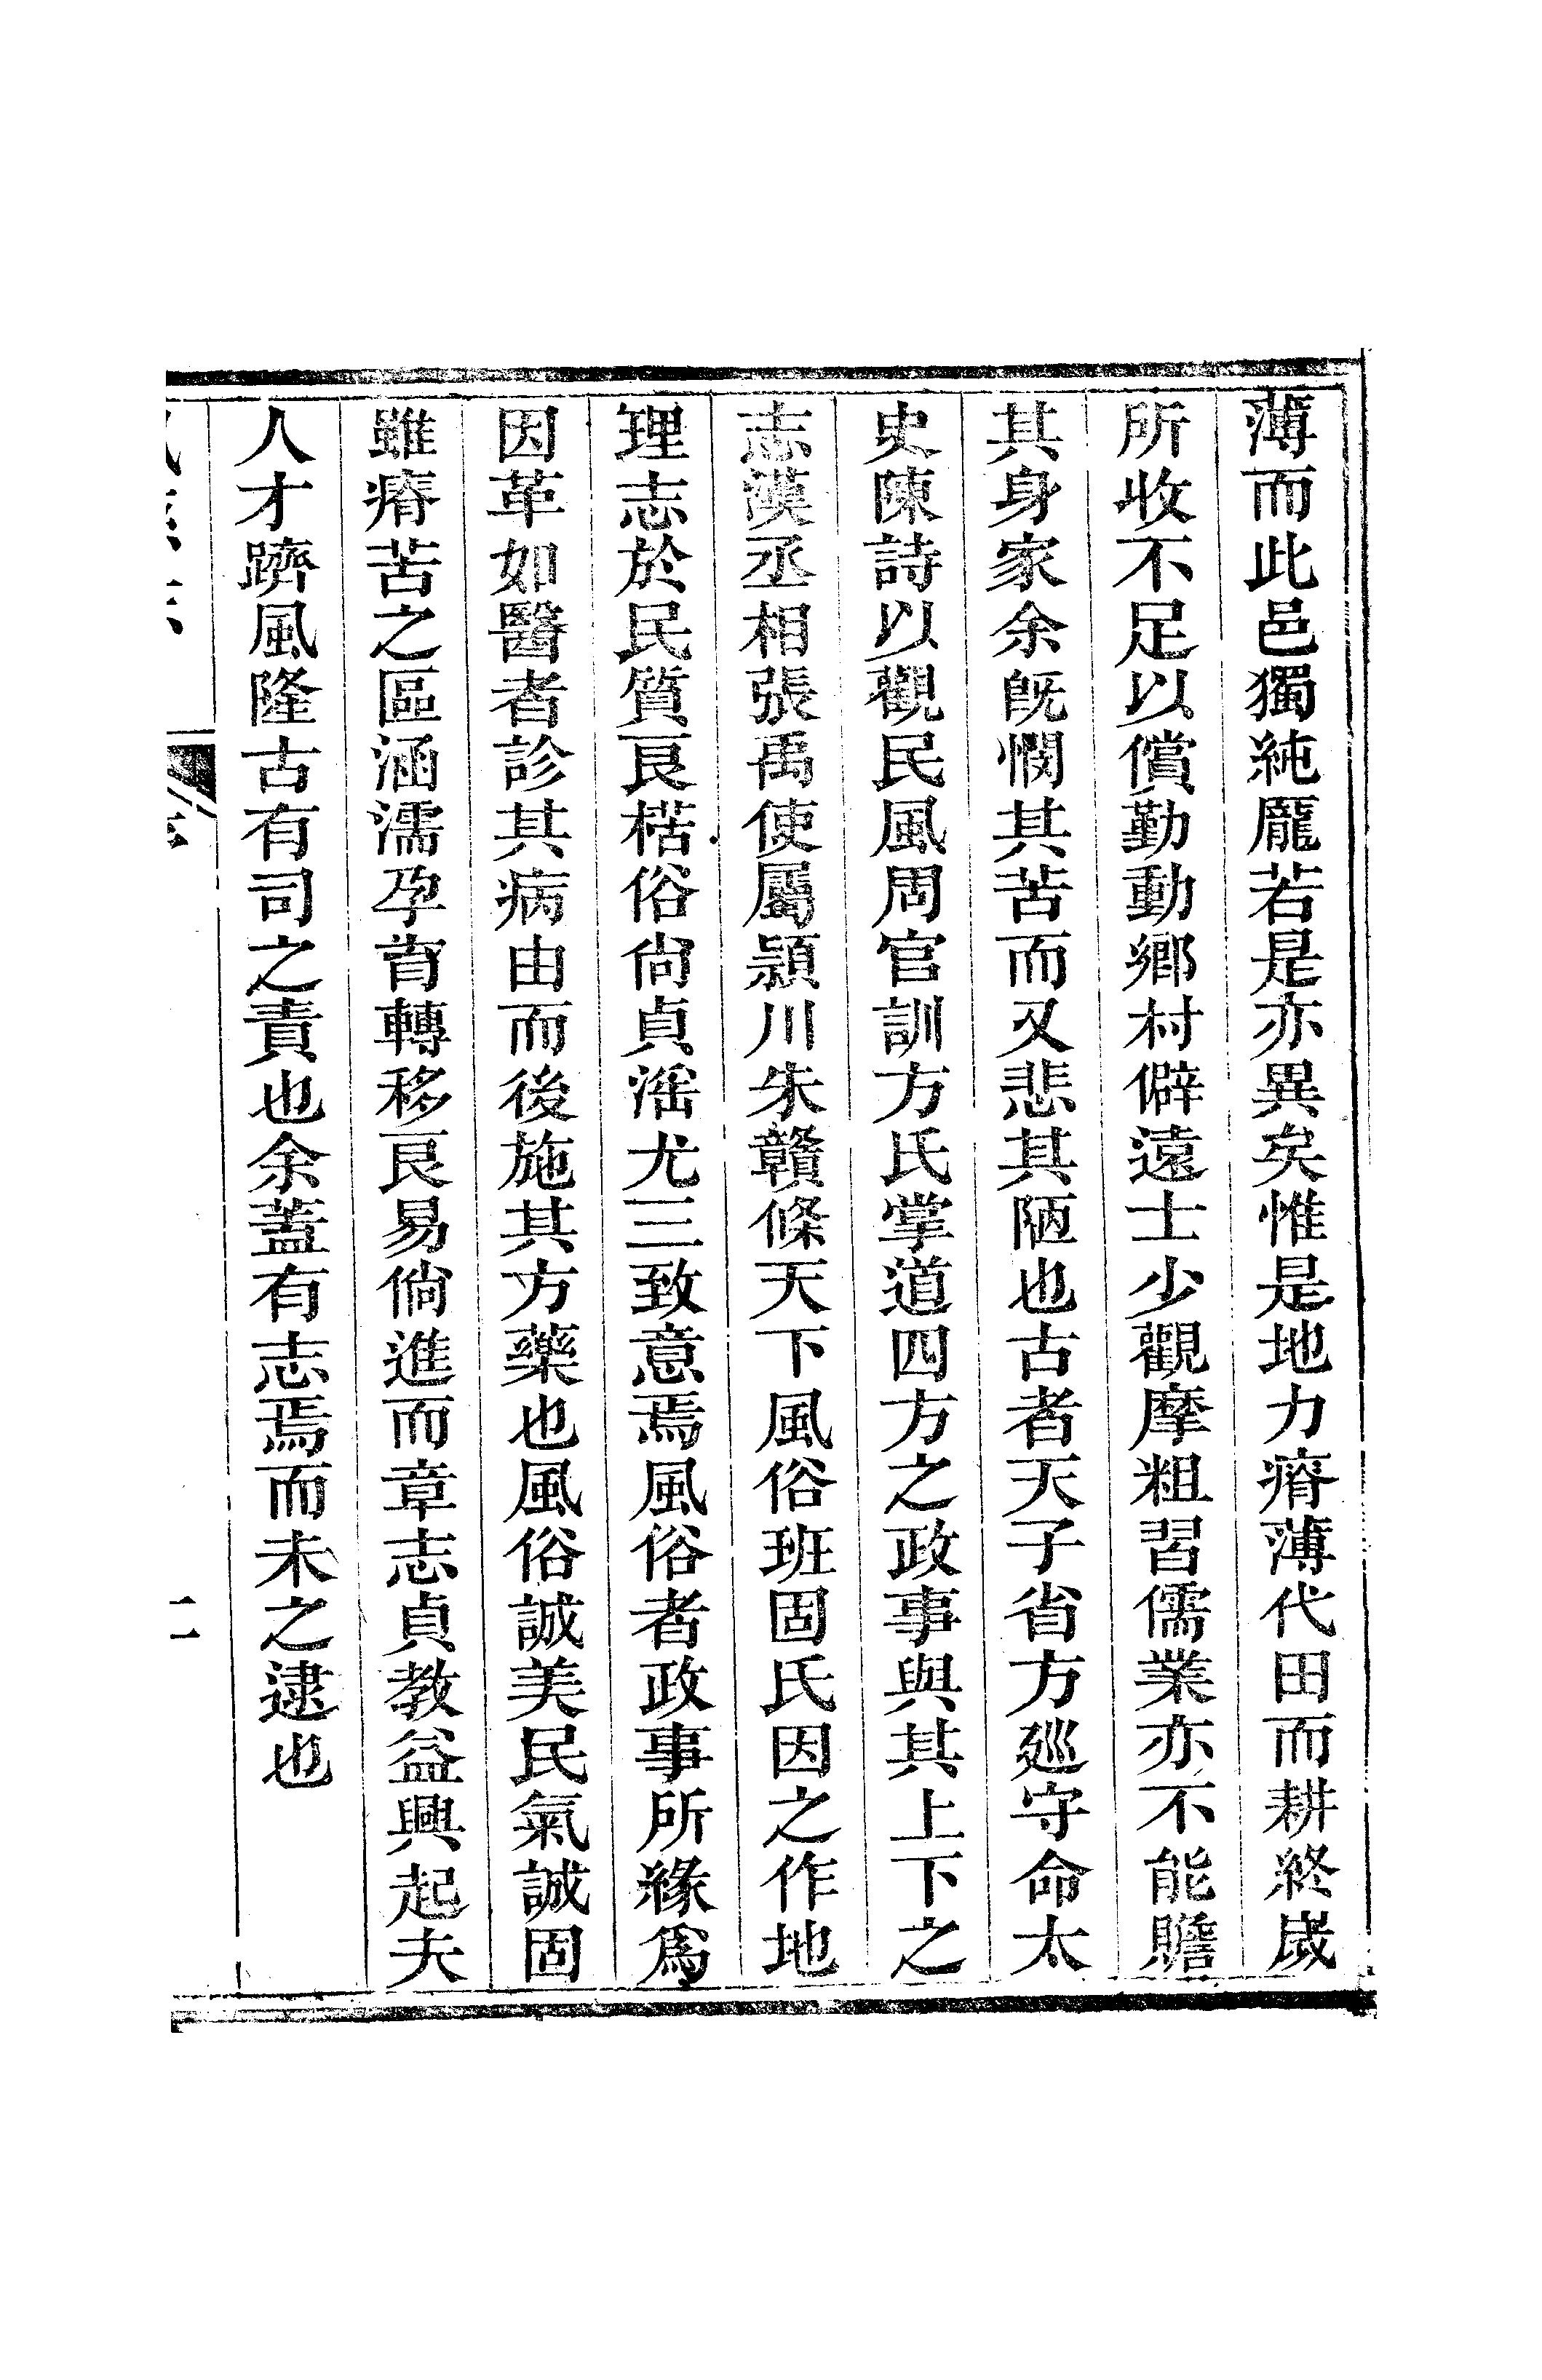 薄而此邑獨純龐若是亦異矣惟是地力瘠薄代田而耕終歲
所收不足以償勤動鄉村僻遠士少觀摩粗習儒業亦不能贍
其身家余旣憫其苦而又悲其陋也古者天子省方廵守命太
史陳詩以觀民風周官訓方氏掌道四方之政事與其上下之
志漢丞相張禹使屬潁川朱贛條天下風俗班固氏因之作地
理志於民質良楛俗尙貞滛尤三致意焉風俗者政事所緣爲
因革如醫者診其病由而後施其方藥也風俗誠美民氣誠固
雖瘠苦之區涵濡孕育轉移良易倘進而章志貞教益興起夫
人才躋風隆古有司之責也余蓋有志焉而未之逮也
二